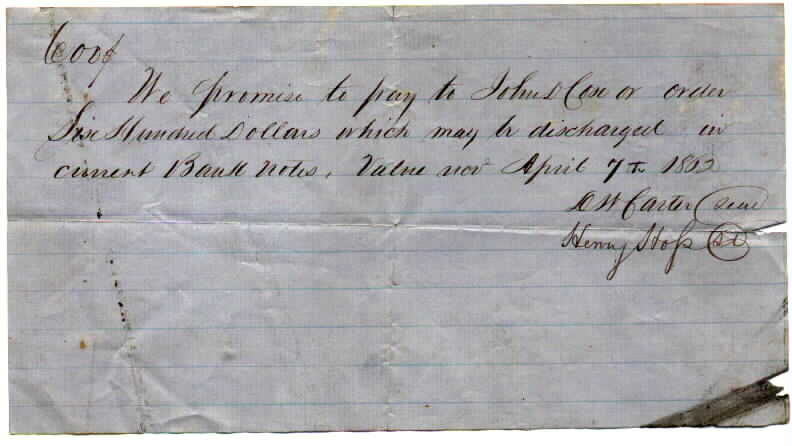 600$
We promise to pay to John D Case or order
Six Hundred Dollars which may be discharged in
current Bank notes. Value recd April 7th 1862
D W Carter Seal
Henry Hoss